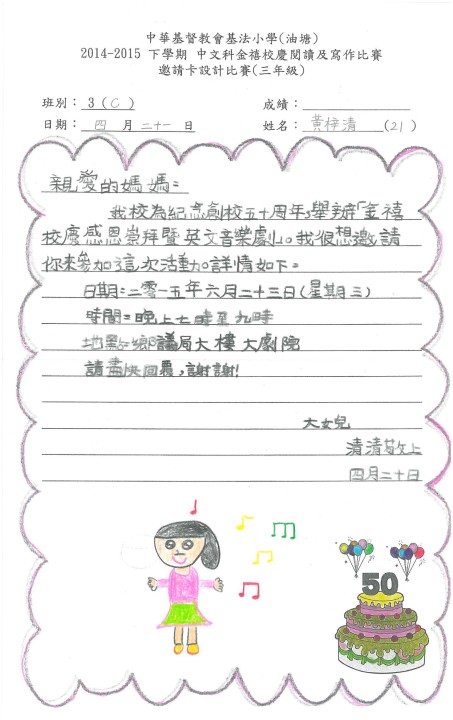 中華基督教會基法小學(油塘)
2014-2015 下學期 中文科金禧校慶閱讀及寫作比賽
邀請卡設計比賽(三年級)
班別： 3 (C) 成績：
日期： 四 月 二十一 日 姓名： 黃梓清 (21)
親愛的媽媽：
我校為紀念創校五十周年，舉辦「金禧
校慶感恩崇拜暨英文音樂劇」。我很想邀請
你來參加這次活動。詳情如下：
日期：二零一五年六月二十三日(星期三)
時間：晚上七時至九時
地點：鄉議局大樓大劇院
請盡快回覆，謝謝！
大女兒
清清敬上
四月二十日
50